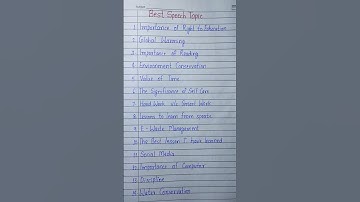 Best Speech Topic
1 Importance of Right to Education
2 Global Warming
3 Importance of Reading
4 Environment Conservation
5 Value of Time
6 The Significance of Self Care
7 Hard Work v/s Smart Work
8 Lessons to learn from sports
9 E-Waste Management
10 The Best lesson I have learned
11 Social Media
12 Importance of Computer
13 Discipline
14 Water Conservation